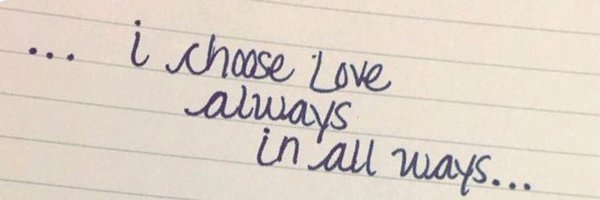 ... i choose love
always
in all ways...